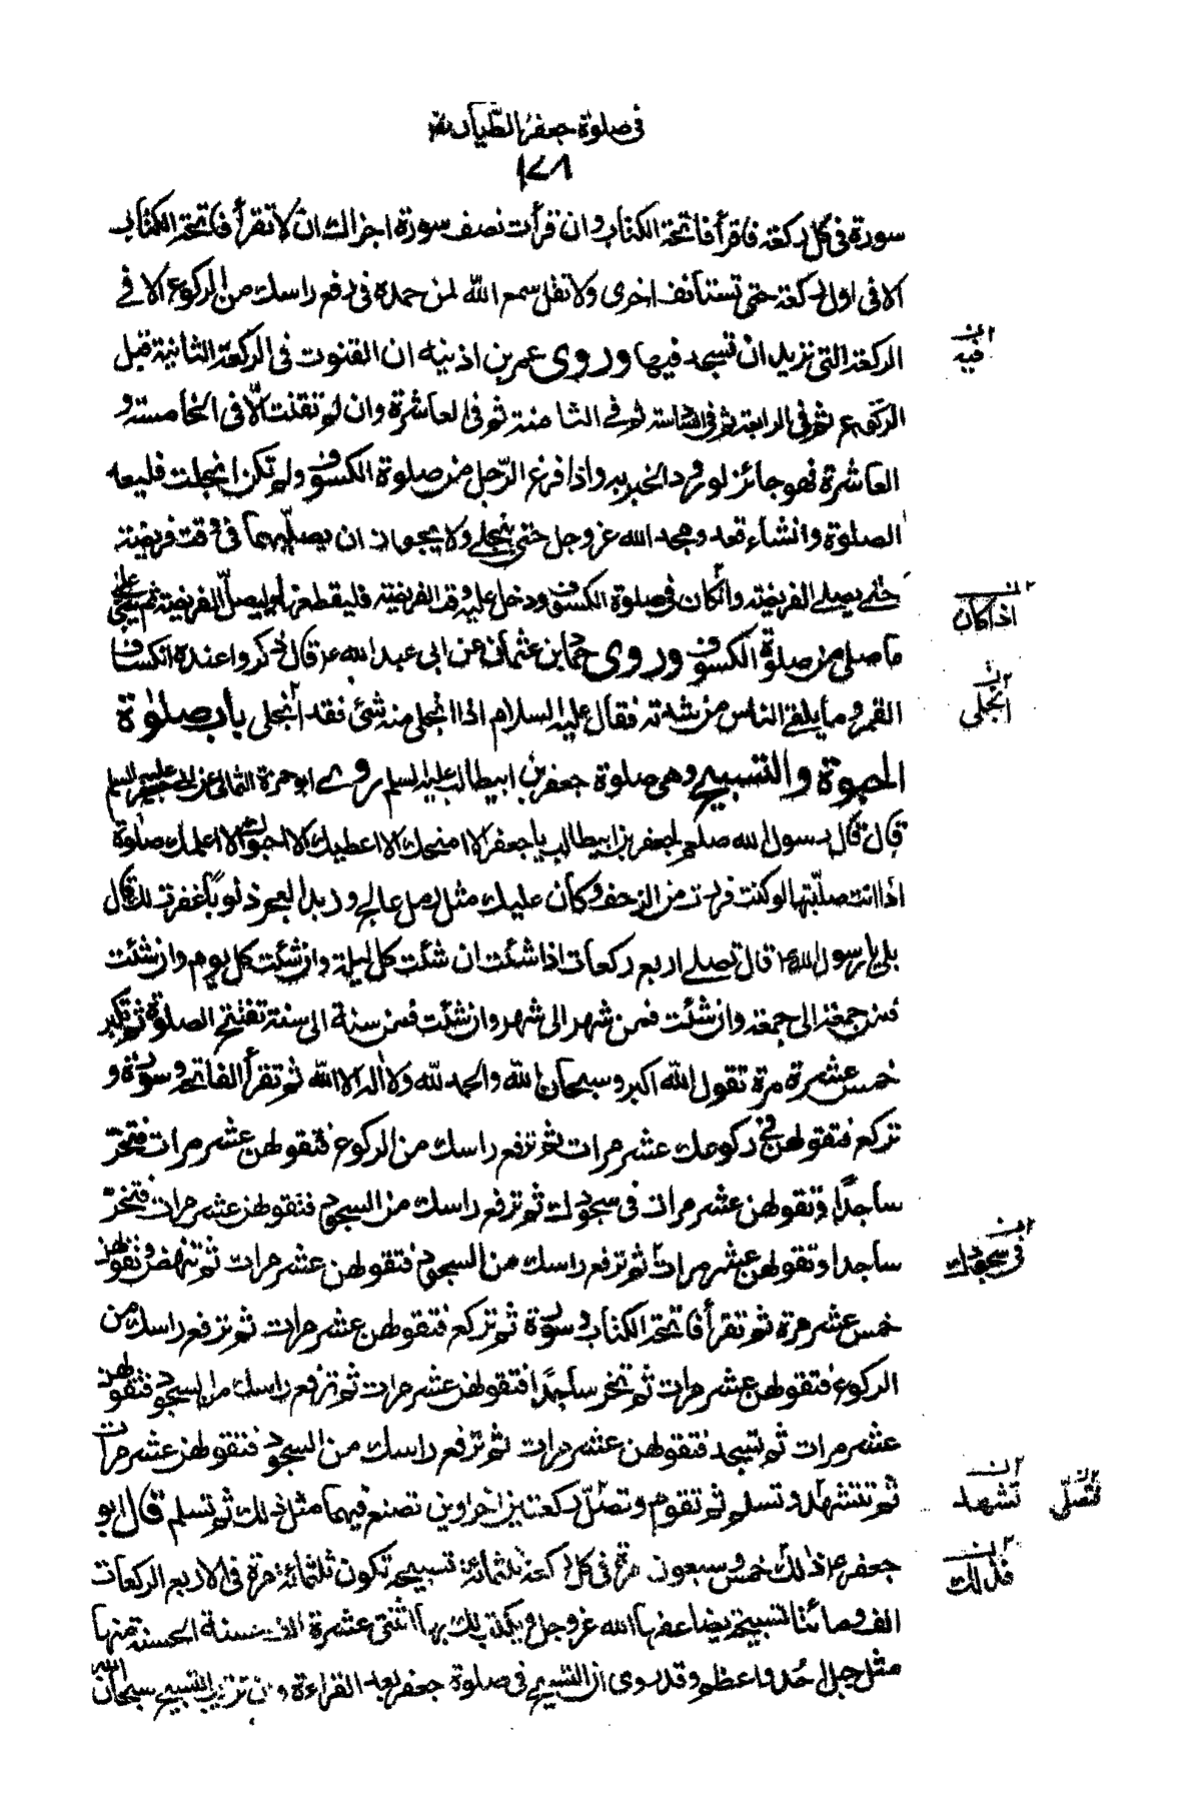 فى صلوة جعفر الطيار
١٤٨
سورة فى كل ركعة فاقرأ فاتحة الكتاب وان قرأت نصف سورة اجزاك ان لا تقرأ فاتحة الكتاب
الا فى اول ركعة حتى تستانف اخرى ولا تقل سمع الله لمن حمده فى رفع راسك من الركوع الا فى
الركعة التى تريد ان تسجد فيها وروى عمر بن اذينه ان القنوت فى الركعة الثانية قبل
الركوع ثم فى الرابعة ثم فى السادسة ثم فى الثامنة ثم فى العاشرة وان لم تقنت الّا فى الخامسة و
العاشرة فهو جائز لورود الخبر به واذا فرغ الرّجل من صلوة الكسوف ولم تكن انجلت فليعد
الصلوة وان شاء قعد ومجد الله عز وجل حتى ينجلى ولا يجوز ان يصلّيهما فى وقت فريضة
حتى يصلى الفريضة وان كان فى صلوة الكسوف ودخل عليه وقت الفريضة فليقطعها وليصلّ الفريضة ثم يبنى على
ما صلى من صلوة الكسوف وروى حماد بن عثمان عن ابى عبد الله ع قال ذكروا عنده انكساف
القمر وما يلقى الناس من شدته فقال عليه السلام اذا انجلى منه شئ فقد انجلى باب صلوة
الحبوة والتسبيح وهى صلوة جعفر بن ابيطالب عليه السلم روى ابو حمزة الثمالى عن ابى جعفر عليه السلم
قال قال رسول الله صلعم لجعفر بن ابيطالب يا جعفر الا امنحك الا اعطيك الا احبوك الا اعلمك صلوة
اذا انت صلّيتها لو كنت فررت من الزحف وكان عليك مثل رمل عالج وزبد البحر ذنوبًا غفرت لك قال
بلى يا رسول الله قال تصلى اربع ركعات اذا شئت ان شئت كل ليلة وان شئت كل يوم وان شئت
فمن جمعة الى جمعة وان شئت فمن شهر الى شهر وان شئت فمن سنة الى سنة تفتتح الصلوة ثم تكبر
خمس عشرة مرة تقول الله اكبر وسبحان الله والحمد لله ولا اله الا الله ثم تقرأ الفاتحة وسورة و
تركع فتقولهن فى ركوعك عشر مرات ثم ترفع راسك من الركوع فتقولهن عشر مرات فتخرّ
ساجدًا وتقولهن عشر مرات فى سجودك ثم ترفع راسك من السجود فتقولهن عشر مرات فتخرّ
ساجدا وتقولهن عشر مرات ثم ترفع راسك من السجود فتقولهن عشر مرات ثم تنهض وتقولهن
خمس عشر مرة ثم تقرأ فاتحة الكتاب وسورة ثم تركع فتقولهن عشر مرات ثم ترفع راسك من
الركوع فتقولهن عشر مرات ثم تخر ساجدًا فتقولهن عشر مرات ثم ترفع راسك من السجود فتقولهن
عشر مرات ثم تسجد فتقولهن عشر مرات ثم ترفع راسك من السجود فتقولهن عشر مرات
ثم تتشهد وتسلم ثم تقوم وتصلّ ركعتين اخراوين تصنع فيهما مثل ذلك ثم تسلم قال ابو
جعفر ع ذلك خمس وسبعون مرة فى كل ركعة ثلثمائة تسبيحة تكون ثلثمائة مرة فى الاربع الركعات
الف ومائتا تسبيحة يضاعفها الله عز وجل ويكتب لك بها اثنتى عشرة الف حسنة الحسنة منها
مثل جبل احد واعظم وقد روى ان التسبيح فى صلوة جعفر بعد القراءة وان ترتيب التسبيح سبحان الله
فيه
اذا كان
انجلى
فى سجودك
تشهد
تصلّى
فذلك